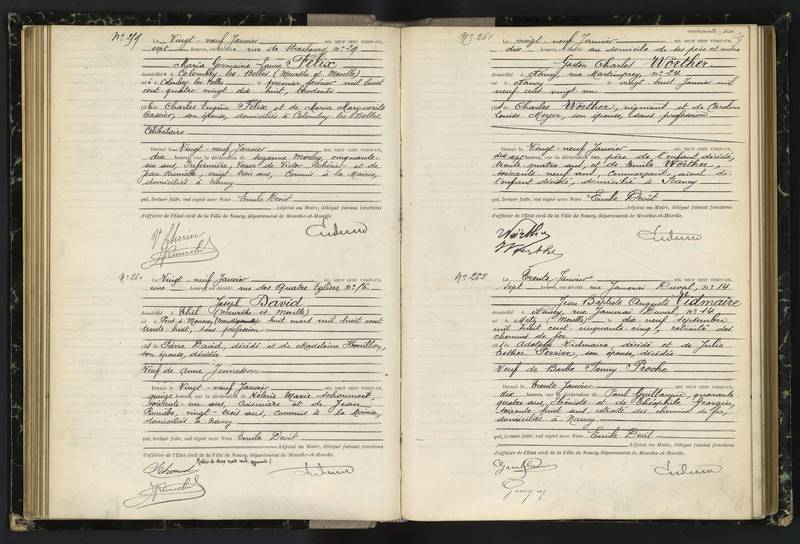 N° 259
Le Vingt-neuf Janvier MIL NEUF CENT VINGT-UN,
sept heures, est décédée rue de Strasbourg n° 29
Maria Germaine Laure Félix
domiciliée à Colombey les Belles (Meurthe et Moselle)
née à Colombey les Belles le premier février mil huit
cent quatre vingt dix huit,
fille de Charles Eugène Félix et de Maria Marguerite
son épouse, domiciliés à Colombey les Belles
Célibataire
Dressé le Vingt-neuf Janvier MIL NEUF CENT VINGT-UN,
dix heures, sur la déclaration de Suzanne cinquante
six ans, Infirmière, Veuve de Victor et de
Jean vingt trois ans, Commis à la Mairie,
domiciliés à Nancy
qui, lecture faite, ont signé avec Nous Emile Devit
Adjoint au Maire, délégué faisant fonctions
d'officier de l'Etat civil de la Ville de Nancy, département de Meurthe-et-Moselle.
N° 260
Le Vingt neuf Janvier MIL NEUF CENT VINGT-UN,
une heures, est décédé rue des Quatre Eglises, n° 76
Joseph David
domicilié à Thil (Meurthe et Moselle)
né à Pont à Mousson huit mars mil huit cent
trente huit, sans profession
fils de Pierre David, décédé et de Madeleine
son épouse, décédée
Veuf de Anne Jennesson
Dressé le Vingt-neuf Janvier MIL NEUF CENT VINGT-UN,
quinze heures, sur la déclaration de Hélène Marie
soixante-un ans, Cuisinière et de Jean
vingt-trois ans, commis à la Mairie,
domiciliés à Nancy
qui, lecture faite, ont signé avec Nous Emile Devit
Adjoint au Maire, délégué faisant fonctions
d'officier de l'Etat civil de la Ville de Nancy, département de Meurthe-et-Moselle.
N° 261
Le vingt-neuf Janvier MIL NEUF CENT VINGT-UN,
dix heures, est décédé au domicile de ses père et mère
Gaston Charles Woether
domicilié à Nancy, rue n° 24
né à Nancy le vingt huit Janvier mil
neuf cent vingt un
fils de Charles Woether, négociant et de Caroline
Louise Meyer, son épouse, sans profession
Dressé le Vingt-neuf Janvier MIL NEUF CENT VINGT-UN,
dix sept heures, sur la déclaration du père de l'enfant décédé,
trente quatre ans, et de Emile Woether,
soixante neuf ans, Commerçant, aïeul de
l'enfant décédé, domiciliés à Nancy
qui, lecture faite, ont signé avec Nous Emile Devit
Adjoint au Maire, délégué faisant fonctions
d'officier de l'Etat civil de la Ville de Nancy, département de Meurthe-et-Moselle.
N° 262
Le Trente Janvier MIL NEUF CENT VINGT-UN,
sept heures, est décédé rue Jamerai Duval, n° 14
Jean Baptiste Auguste Vidmaire
domicilié à Nancy, rue Jamerai Duval, n° 14
né à Metz (Moselle) le dix neuf septembre
mil huit cent cinquante cinq, retraité des
chemins de fer
fils de Adolphe Vidmaire, décédé et de Julie
Esther Perrier, son épouse, décédée
Veuf de Barbe Fanny Proche
Dressé le Trente Janvier MIL NEUF CENT VINGT-UN,
dix heures, sur la déclaration de Paul Guillaume, quarante
quatre ans, et de Théophile Georgin,
soixante huit ans, retraité des chemins de fer,
domiciliés à Nancy
qui, lecture faite, ont signé avec Nous Emile Devit
Adjoint au Maire, délégué faisant fonctions
d'officier de l'Etat civil de la Ville de Nancy, département de Meurthe-et-Moselle.